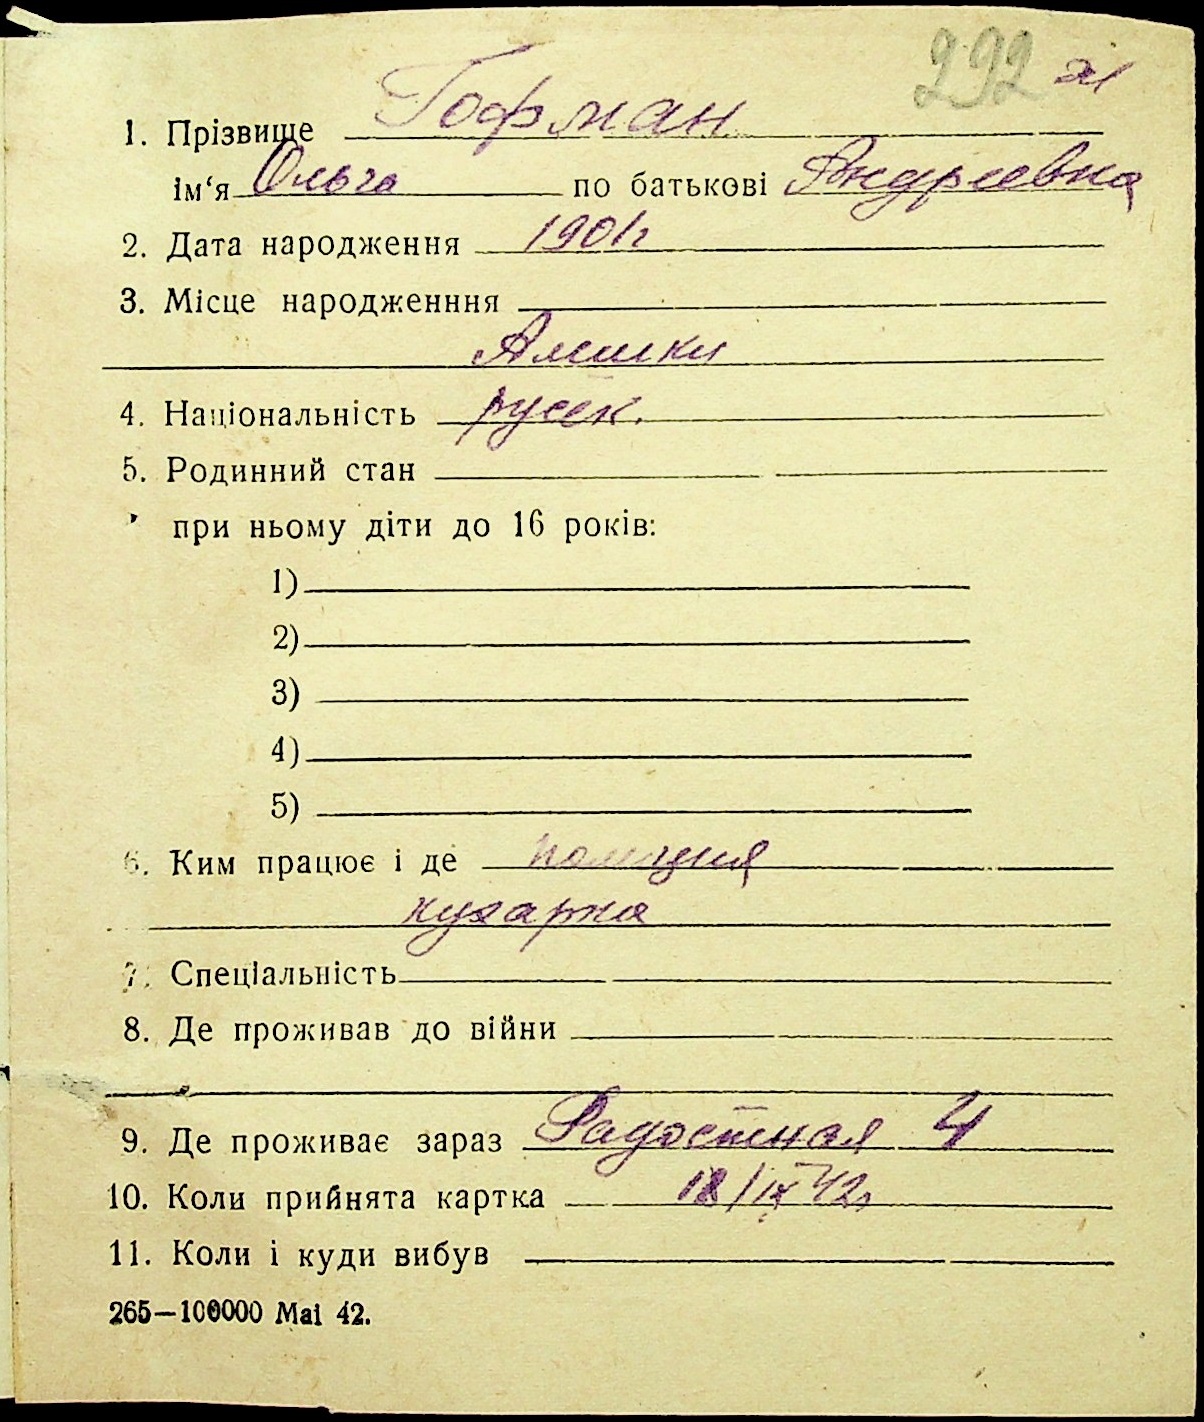 292
1. Прізвище Гофман
ім‘я Ольга по батькові Андреевна
2. Дата народження 1901г
3. Місце народженння
4. Національність русск.
5. Родинний стан
при ньому діти до 16 років:
1)
2)
3)
4)
5)
6. Ким працює і де полиция
кухарка
7. Спеціальність
8. Де проживав до війни
9. Де проживає зараз Радостная 4
10. Коли прийнята картка 18/IX 42г
11. Коли і куди вибув
265—100000 Mai 42.